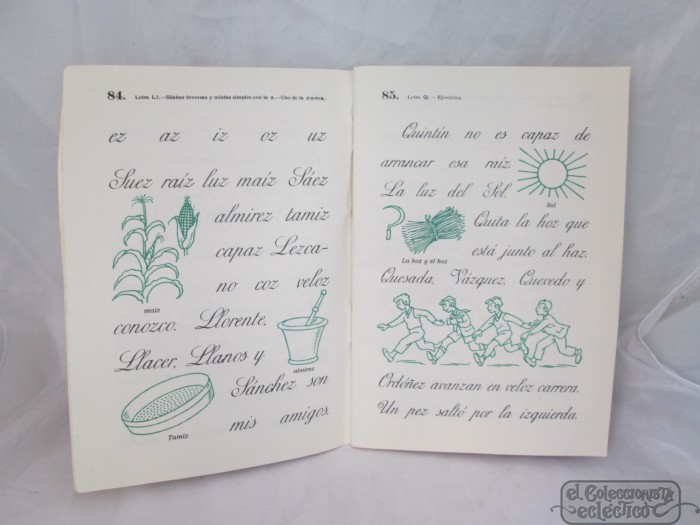 84. Letra Ll.—Sílabas inversas y sílabas simples con la z.—Uso de la
ez az iz oz uz
Suez raíz luz maíz Sáez
almirez tamiz
capaz Lezca-
no coz veloz
maíz
conozco. Llorente,
Llacer, Llanos y
almirez
Sánchez son
mis amigos.
Tamiz
85. Letra Q.—Ejercicios.
Quintín no es capaz de
arrancar esa raíz.
La luz del Sol.
Sol
Quita la hoz que
está junto al haz.
La hoz y el haz
Quesada, Vázquez, Quevedo y
Ordóñez avanzan en veloz carrera.
Un pez saltó por la izquierda.
el Coleccionista
ecléctico